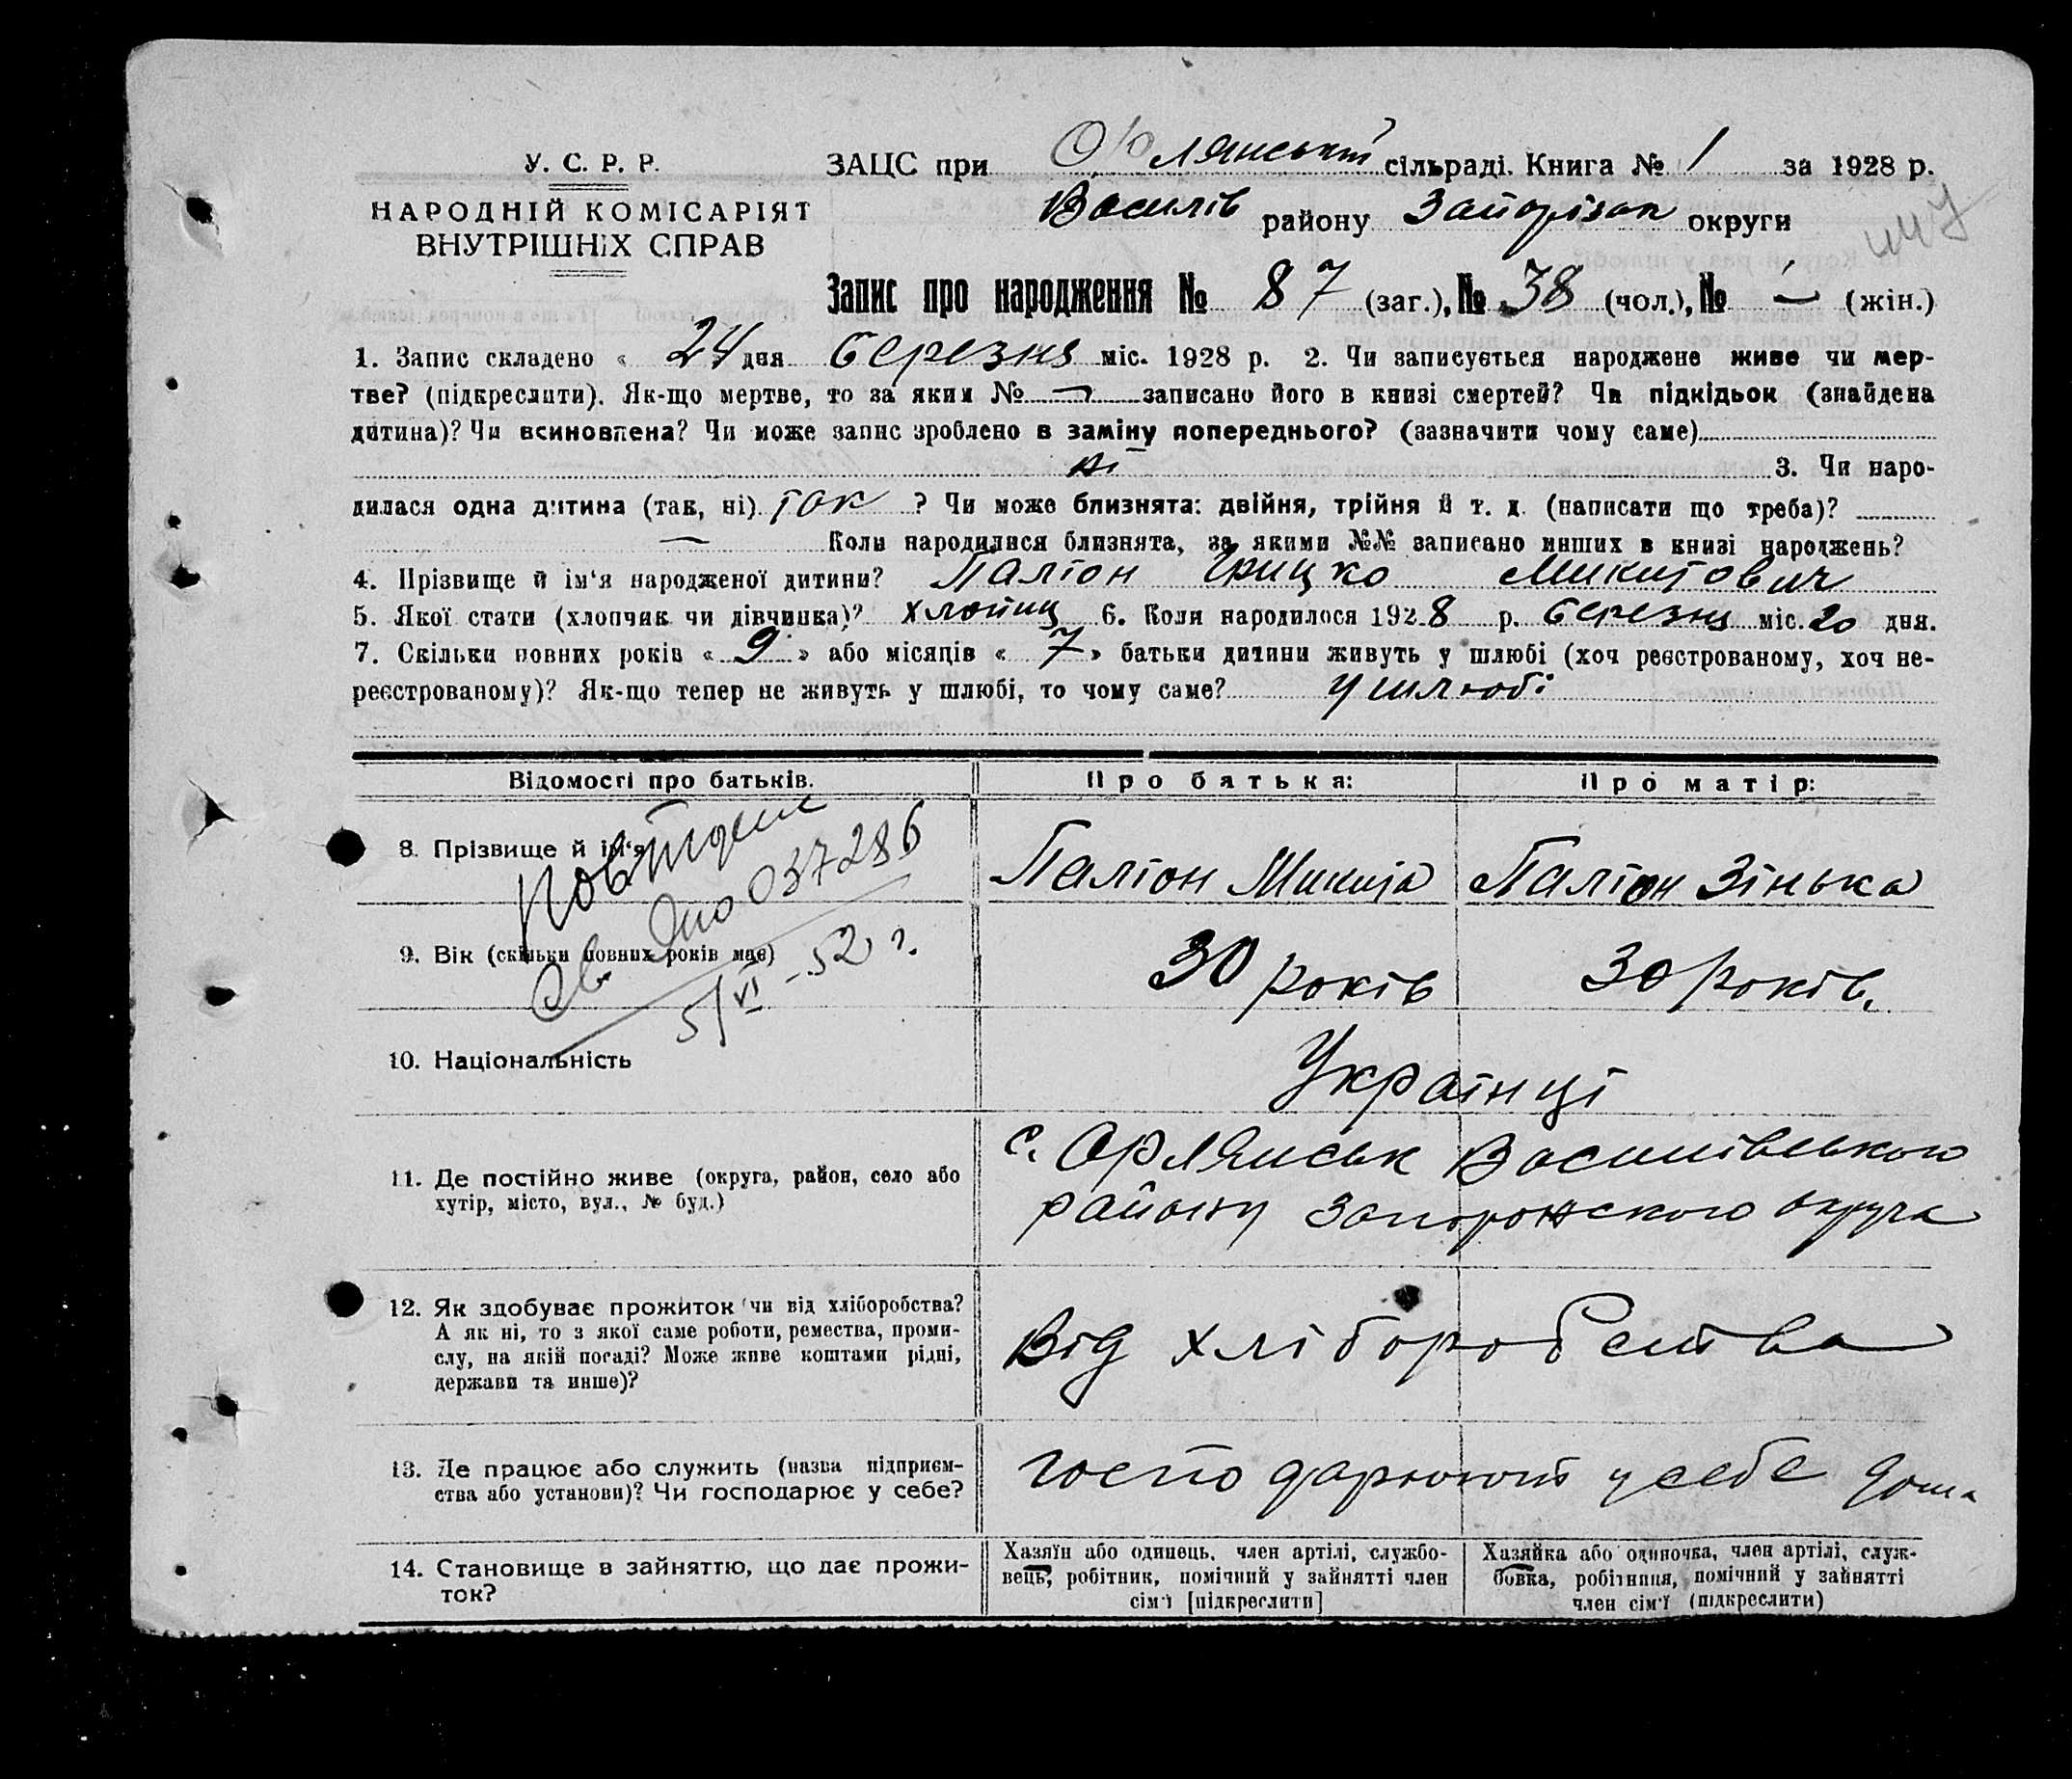 У. С. Р. Р.
НАРОДНІЙ КОМІСАРІЯТ
ВНУТРІШНІХ СПРАВ
ЗАЦС при Орлянській сільраді. Книга № 1 за 1928 р.
Василів району Запорізьк округи
Запис про народження № 87 (заг.), № 38 (чол.), № — (жін.)
1. Запис складено « 24 дня березня міс. 1928 р. 2. Чи записується народжене живе чи мер-
тве? (підкреслити). Як-що мертве, то за яким № — записано його в книзі смертей? Чи підкідьок (знайдена
дитина)? Чи всиновлена? Чи може запис зроблено в заміну попереднього? (зазначити чому саме)
ні 3. Чи наро-
дилася одна дитина (так, ні) так ? Чи може близнята: двійня, трійня й т. д. (написати що треба)?
— Коли народилися близнята, за якими №№ записано инших в книзі народжень?
4. Прізвище й ім'я народженої дитини? Паліон Грицко Микитович
5. Якої стати (хлопчик чи дівчинка)? хлопиц 6. Коли народилося 1928 р. березня міс. 20 дня.
7. Скільки повних років « 9 » або місяців « 7 » батьки дитини живуть у шлюбі (хоч реєстрованому, хоч не-
реєстрованому)? Як-що тепер не живуть у шлюбі, то чому саме? у шлюбі
Відомості про батьків. Про батька: Про матір:
8. Прізвище й ім'я Паліон Микита Паліон Зінька
9. Вік (скільки повних років має) 30 років 30 років.
037286
5/VI - 52 г.
10. Національність Українці
11. Де постійно живе (округа, район, село або
хутір, місто, вул., № буд.)
с. Орлянськ Василівського
району Запорожского округа
12. Як здобуває прожиток (чи від хліборобства?
А як ні, то з якої саме роботи, ремества, проми-
слу, на якій посаді? Може живе коштами рідні,
держави та инше)?
Від хліборобства
13. Де працює або служить (назва підприєм-
ства або установи)? Чи господарює у себе?
господарюють у себе дома
14. Становище в зайняттю, що дає прожи-
ток?
Хазяїн або одинець, член артілі, службо-
вець, робітник, помічний у зайнятті член
сім'ї [підкреслити]
Хазяйка або одиночка, член артілі, служ-
бовка, робітниця, помічний у зайнятті
член сім'ї (підкреслити)